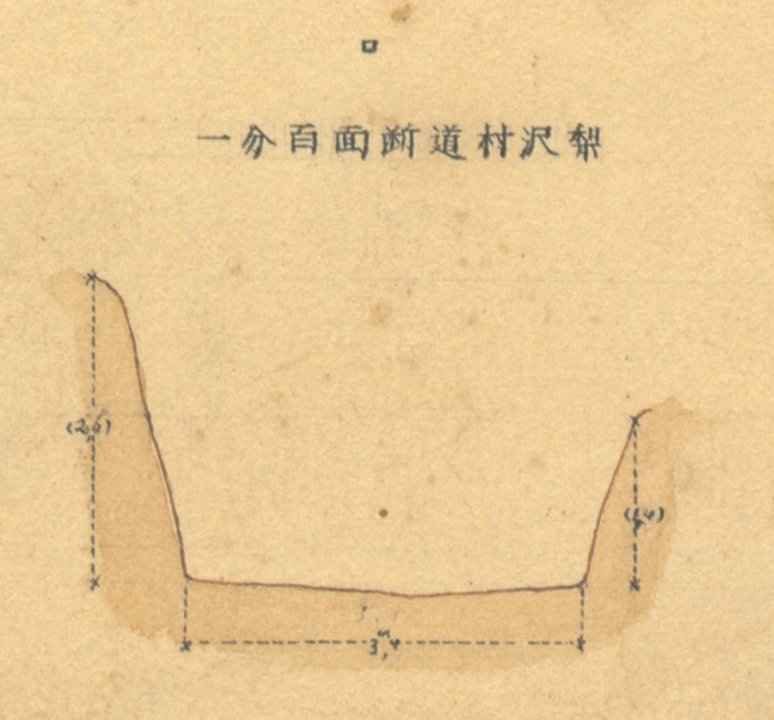 ロ
梨沢村道断面百分一
(2,6)
(1,4)
3,4